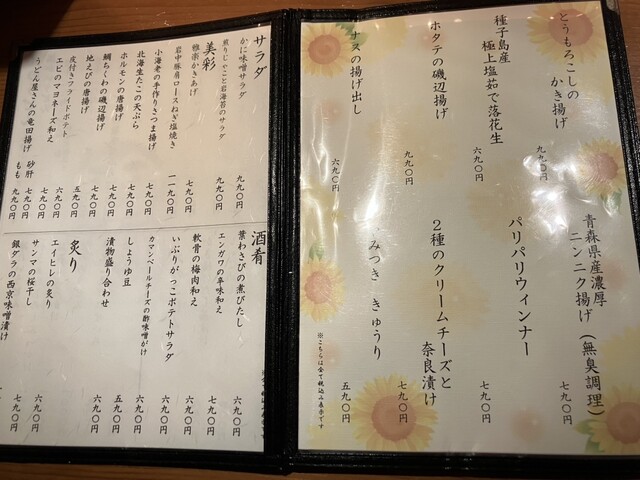 とうもろこしの
かき揚げ
九九〇円
種子島産
極上塩茹で落花生
七九〇円
ホタテの磯辺揚げ
九九〇円
ナスの揚げ出し
六九〇円
青森県産濃厚
ニンニク揚げ(無臭調理)
七九〇円
パリパリウィンナー
七九〇円
2種のクリームチーズと
奈良漬け
七九〇円
みつき きゅうり
五九〇円
※こちらは全て税込み表示です
サラダ
かに味噌サラダ
九九〇円
煎りじゃこと岩海苔のサラダ
九九〇円
美彩
雅楽かきあげ
七九〇円
岩中豚肩ロースねぎ塩焼き
一一九〇円
小海老の手作りさつま揚げ
七九〇円
北海生たこの天ぷら
七九〇円
ホルモンの唐揚げ
七九〇円
鯛ちくわの磯辺揚げ
七九〇円
地えびの唐揚げ
七九〇円
皮付きフライドポテト
五九〇円
エビのマヨネーズ和え
九九〇円
うどん屋さんの竜田揚げ
砂肝
七九〇円
もも
九九〇円
酒肴
葉わさびの煮びたし
六九〇円
エンガワの辛味和え
七九〇円
軟骨の梅肉和え
六九〇円
いぶりがっこポテトサラダ
六九〇円
カマンベールチーズの酢味噌がけ
六九〇円
しょうゆ豆
五九〇円
漬物盛り合わせ
六九〇円
炙り
エイヒレの炙り
六九〇円
サンマの桜干し
七九〇円
銀ダラの西京味噌漬け